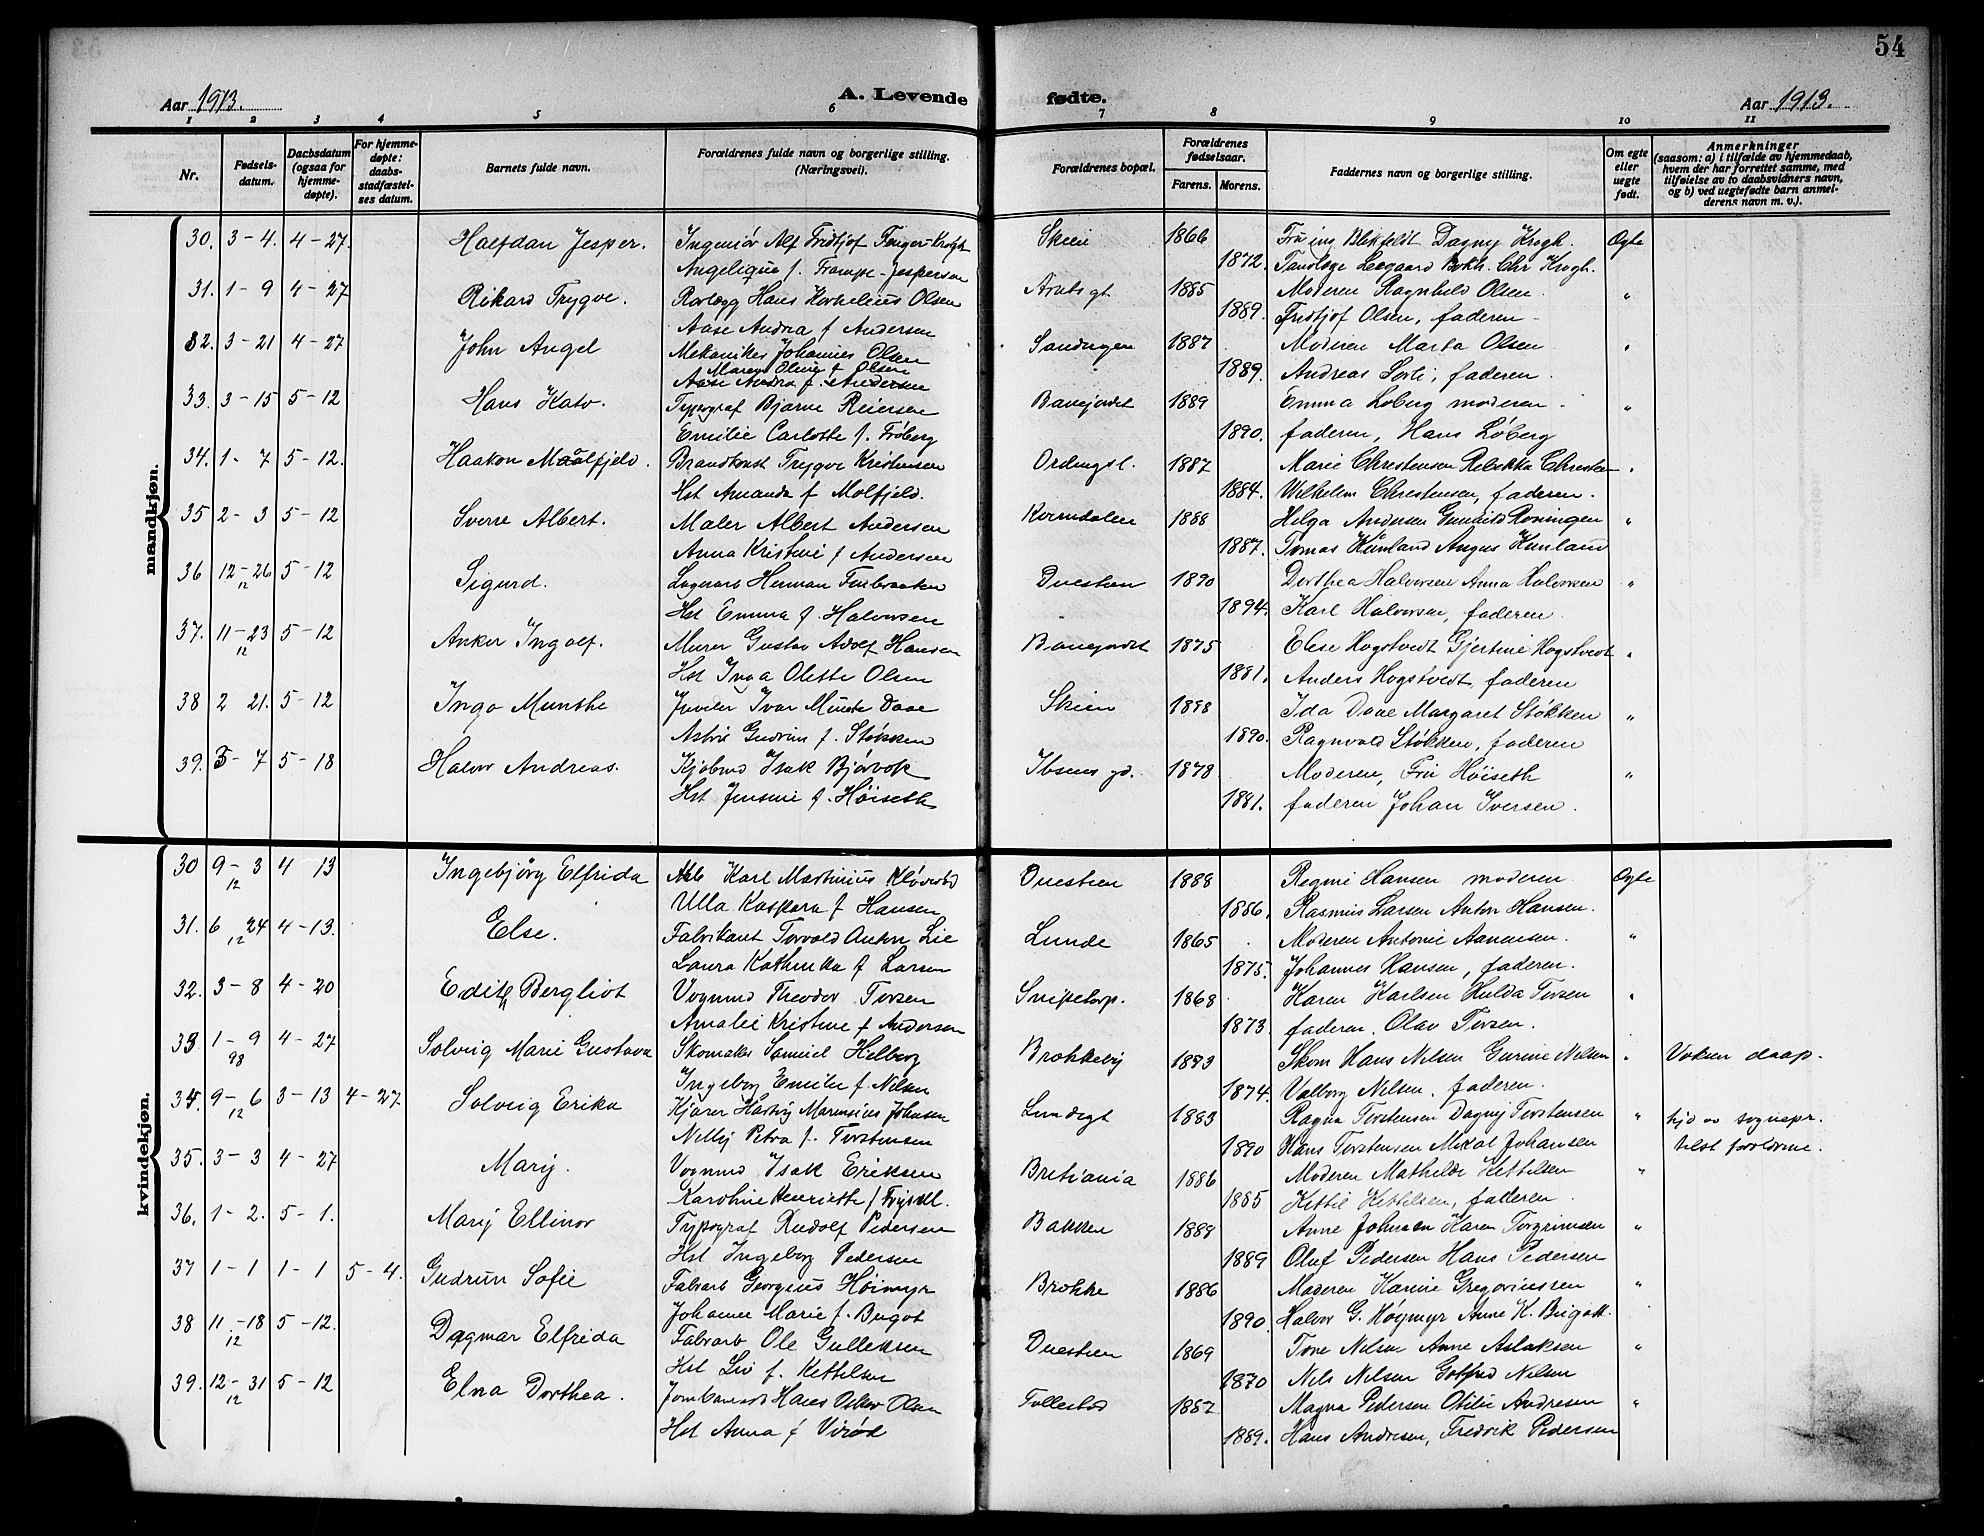 54
Aar 1913.
A. Levende fødte.
Aar 1913.
1 2 3 4 5 6 7 8 9 10 11
Nr.
Fødsels-
datum.
Daabsdatum
(ogsaa for
hjemme-
døpte).
For hjemme-
døpte:
daabs-
stadfæstel-
ses datum.
Barnets fulde navn.
Forældrenes fulde navn og borgerlige stilling.
(Næringsvei).
Forældrenes bopæl.
Forældrenes
fødselsaar.
Farens. Morens.
Faddernes navn og borgerlige stilling.
Om egte
eller
uegte
født.
Anmerkninger
(saasom: a) i tilfælde av hjemmedaab,
hvem der har forrettet samme, med
tilføielse av to daabsvidners navn,
og b) ved uegtefødte barn anmel-
derens navn m. v.).
mandkjøn.
30. 3-4. 4-27. Halfdan Jesper. Ingeniør Alf Fridtjof Fenger-Krogh Skien 1866 Fru ing Blekfeldt Dagny Krogh. Egte
Angelique f. Trampe-Jespersen 1872. Tandlæge Leegaard Bokh. Chr Krogh.
31. 1-9 4-27 Rikard Trygve. Rørlegg Hans Kornelius Olsen 1885 Moderen Ragnhild Olsen "
Aase Andrea f Andersen 1889. Fridtjof Olsen, faderen
32. 3-21 4-27 John Angel Mekaniker Johannes Olsen 1887 Moderen Marta Olsen "
Maren Oline f Olsen
Aase Andrea f. Andersen 1889. Andreas Sorli, faderen.
33. 3-15 5-12 Hans Kato. Typograf Bjarne Reiersen Banejordet 1889 Emma Loberg moderen "
Emilie Carlotte f. Frøberg 1890. faderen, Hans Loberg
34. 1-7 5-12. Haakon Molfjeld. Brandkonst Trygve Kristensen 1887 Marie Christensen Rebekka Christen "
Hst Amanda f Molfjeld. 1884. Wilhelm Christensen, faderen.
35 2-3 5-12 Sverre Albert. Maler Albert Andersen 1888 Helga Andersen Gunhild Roningen "
Anna Kristine f Andersen 1887. Tomas Hunland Angus Hunland
36 12-26 5-12 Sigurd. Lagerarb Herman Duestien 1890 Dorthea Halvorsen Anna Halvorsen "
12
Hst Emma f Halvorsen 1894. Karl Halvorsen, faderen.
37. 11-23 5-12 Anker Ingolf. Murer Gustav Adolf Hansen Banejordet 1875 Elise Hogstvedt Gjertine Hogstvedt "
12
Hst Inga Olette Olsen 1881. Anders Hogstvedt, faderen
38 2 21. 5-12 Inga Munthe Juveler Ivar Munte Daae Skien 1888 Ida Daae Margaret Støkken "
Astri Gudrun f. Støkken 1890. Ragnvald Støkken, faderen
39. 5-7 5-18 Halvor Andreas. Kjøbmd Isak Bjørvok Ibsens gd. 1878 Moderen, Fru Høiseth "
Hst Jensine f. Høiseth 1881. faderen Johan Iversen.
kvindekjøn.
30 9-3 4 13 Ingebjörg Elfrida Karl Martinius Duestien 1888 Regine Hansen moderen Egte
12
Ulla Kaspara f Hansen 1886. Rasmus Larsen Anton Hansen.
31. 6 24 4-13. Else. Fabrikant Torvald Anton Lie Lunde 1865 Moderen Antonie Aanensen. "
12
Laura Kathinka f Larsen 1875. Johannes Hansen, faderen.
32. 3-8 4-20 Edith Bergliot Vognmd Theodor Torsen Snipetorp. 1868 Karen Karlsen Hulda Torsen "
Amalie Kristine f Andersen 1873. faderen. Olav Torsen.
33. 1-9 4-27 Solveig Marie Gustava Skomaker Samuel Helberg 1883 Skom Hans Nilsen Gurine Nilsen " Voksen daap.
98
Ingeborg Emilie f. Nilsen 1874. Valborg Nilsen. faderen.
34. 9-6 3-13 4-27 Solveig Erika Kjører Hartvig Marensius Johnsen Lundegt 1883 Ragna Torstensen Dagny Torstensen " hjd av sognepr.
12
Nelly Petra f. Torstensen 1890 Hans Torstensen Mikal Johansen
35. 3-3 4-27 Mary. Vognmd Isak Eriksen Bretiania 1886 Moderen Mathilde Kettilsen "
Karoline Henriette f 1885 Kittil Kittilsen, faderen.
36. 1-2. 5-1. Mary Ellinor Typograf Rudolf Pedersen Bakken 1888 Anne Johnsen Karen Torgrimsen "
Hst Ingeborg Pedersen 1889 Oluf Pedersen Hans Pedersen
37 1-1 1-1 5-4. Gudrun Sofie Fabarb Georgius Høimyr Brokke 1886 Moderen Karine Gregoriussen "
Johanne Marie f. Bugot 1890. Halvor G. Høymyr Anne K. Bugott
38 11-18 5-12. Dagmar Elfrida Fabarb Ole Gulleksen Duestien 1869 Tone Nilsen Anne Aslaksen "
12
Hst Liv f. Kettilsen 1870 Nils Nilsen Gotfred Nilsen
39. 12-31 5-12 Elna Dorthea. Hans Oskar Olsen Follestad 1887 Magna Pedersen Otilie Andresen "
12
Hst Anna f Virød 1889. Hans Andresen, Fredrik Pedersen